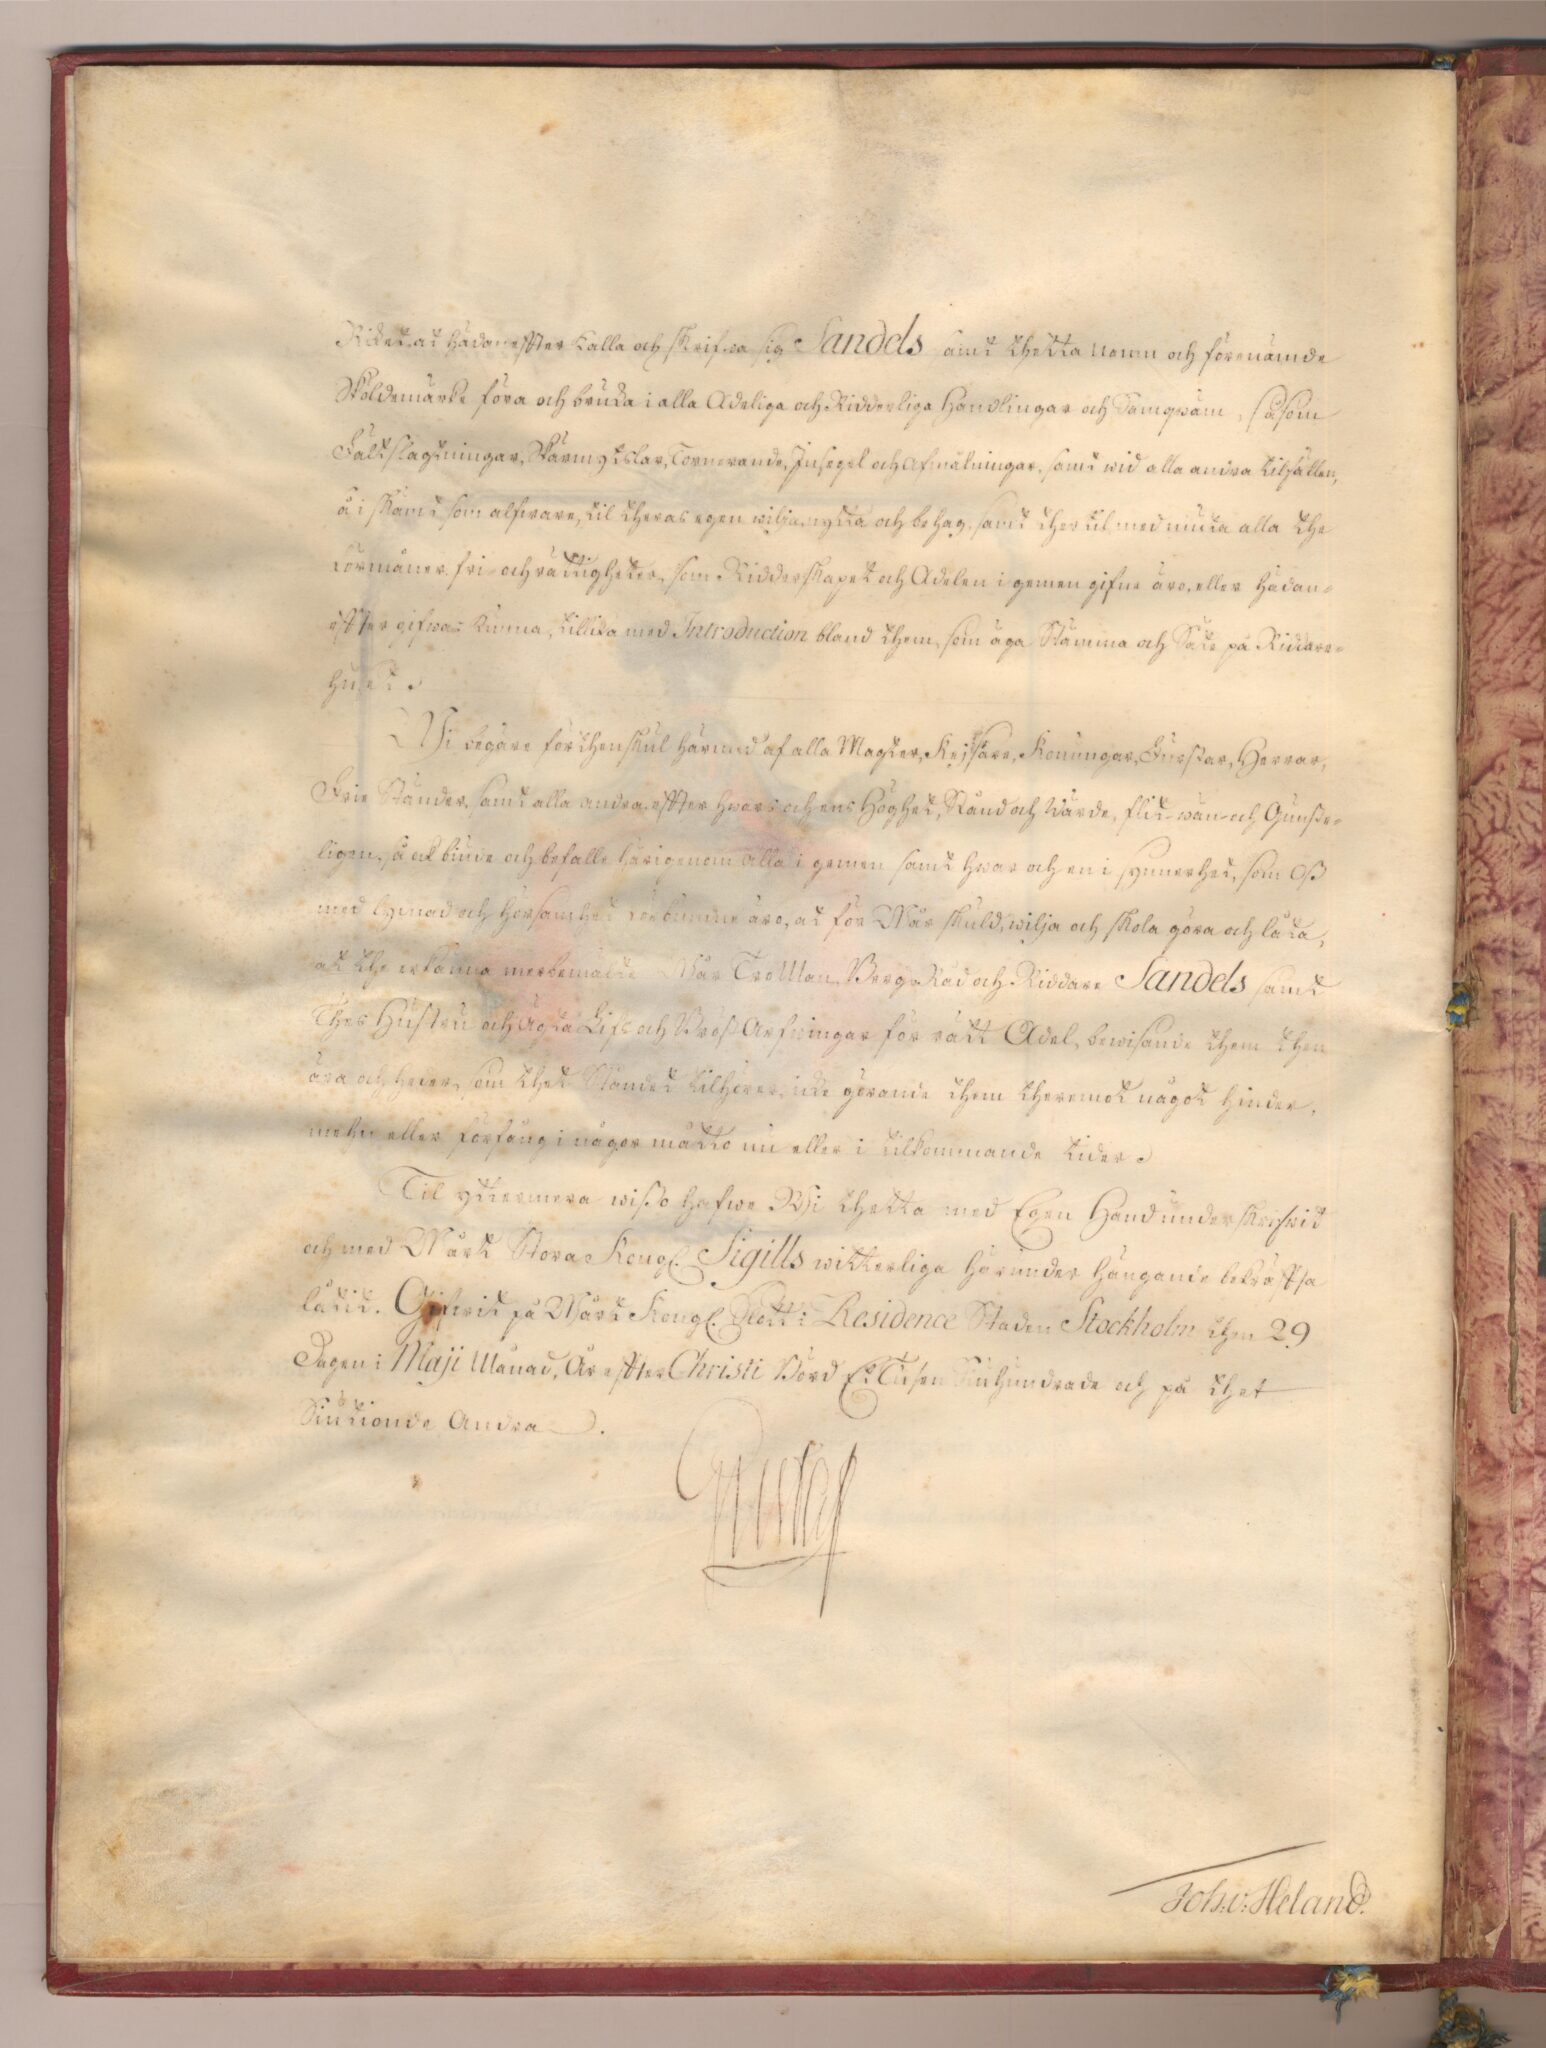 Riket, at hädanefter kalla och skrifwa sig Sandels samt thetta namn och förenämde
Sköldemärke föra och bruka i alla Adeliga och Ridderliga Handlingar och Samqwäm, såsom
Fältslagtningar, Skärmytslar, Tornerande, Insegel och Afmålningar, samt wid alla andra tilfällen,
å i skämt som alfware, til theras egen wilja, nytta och behag, samt ther til med niuta alla the
Förmåner, fri- och rättigheter, som Ridderskapet och Adelen i gemen gifne äro, eller hädan-
effter gifwas kunna, tillika med Introduction bland them, som äga Stämma och Säte på Riddare-
huset.
Wi begäre förthenskul härmed af alla Magter, Kejsare, Konungar, Furstar, Herrar,
Frie Ständer, samt alla andra, effter hwars och ens Höghet, Stånd och Wärde, flit- wän- och Gunste-
ligen, så ock biude och befalle härigenom alla i gemen samt hwar och en i synnerhet, som Oß
med lydnad och hörsamhet förbundne äro, at för Wår skuld, wilja och skola göra och låta,
at the erkänna merbemälte Wår Tro Man, Berg-Råd och Riddare Sandels samt
Thes Hustru och Ägta Lifs och Bröst Arfwingar för rätt Adel, bewisande them then
ära och heder, som thet Ståndet tilhörer, icke görande them theremot något hinder,
mehn eller förfång i någor måtto nu eller i tilkommande tider.
Til yttermera wißo hafwe Wi thetta med Egen Hand underskrifwit
och med Wårt Stora Kongl. Sigills witterliga härunder hängande bekräffta
låtit. Gifwit på Wårt Kongl. Slott i Residence Staden Stockholm then 29
Dagen i Maji Månad, År effter Christi Börd Et Tusen Siuhundrade och på thet
Siutionde Andra.
Gustaf
Joh: v: Heland.